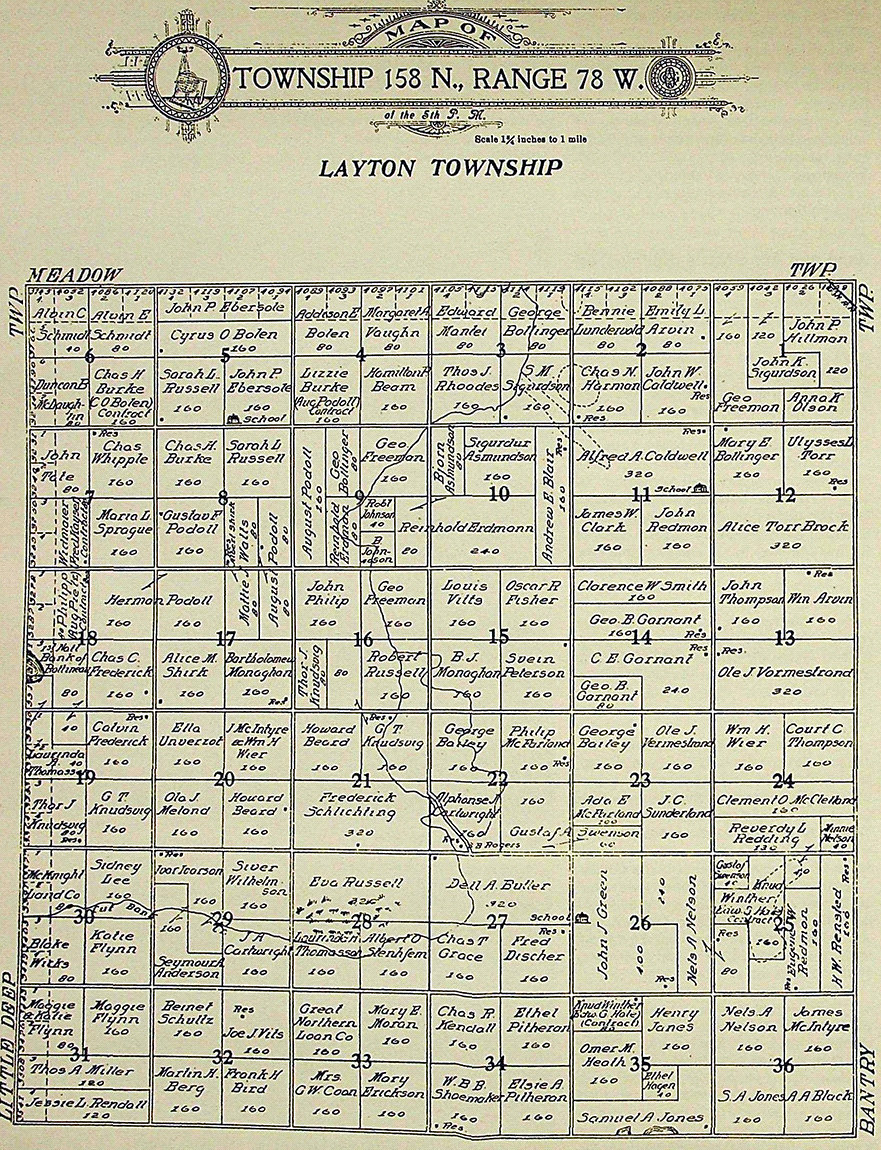 MAP OF
TOWNSHIP 158 N., RANGE 78 W.
of the 5th P. M.
Scale 1¾ inches to 1 mile
LAYTON TOWNSHIP
MEADOW TWP.
TWP
TWP.
LITTLE DEEP
BANTRY
Alvin C Schmidt
40
Alvin E Schmidt
80
6
Duncan B McLaughlin
80
Chas H Burke
(C O Bolen)
Contract
160
John P Ebersole
Cyrus O Bolen
160
5
Sarah L Russell
160
John P Ebersole
160
School
Addison E Bolen
80
Margaret A Vaughn
80
4
Lizzie Burke
(Aug Podoll)
Contract
160
Hamilton P Beam
160
Edward Mantel
80
George Bollinger
80
3
Thos J. Rhoades
160
S M Sigurdson
Bennie Lunderwold
80
Emily L Arvin
80
2
Chas N. Harman
160
Res
John W Caldwell
160
Res
160
120
1
John P Hillman
120
John K. Sigurdson
Geo Freeman
Anna K Olson
John Tole
80
7
Res
Chas Whipple
160
Maria L Sprague
160
Chas. H. Burke
160
Sarah L Russell
160
8
Gustav F Podoll
160
Mattie J Watts
80
August Podoll
80
August Podoll
160
Geo Bollinger
Geo Freeman
160
9
Reinhold Erdman
80
Robt Johnson
40
B Johnson
80
Bjorn Asmundson
80
Sigurdur Asmundson
160
10
Reinhold Erdmann
240
Andrew E. Blair
160
Res
Alfred A. Caldwell
320
Res
11
School
James W. Clark
160
John Redmon
160
Mary E Bollinger
160
Ulysses L Torr
160
Res
12
Alice Torr Brock
320
18
Herman Podoll
160
160
17
1st Natl Bank of Bottineau
80
Chas C. Frederick
160
Alice M. Shirk
160
Bartholomew Monaghan
160
Res
John Philip
160
Geo Freeman
160
16
Thor J. Knudsvig
80
80
Robert Russell
160
Louis Vilts
160
Oscar R Fisher
160
15
B.J. Monaghan
160
Svein Peterson
160
Clarence W Smith
160
Geo. B. Gornant
160
Res
14
C E. Gornant
Res
240
Geo. B. Gornant
80
John Thompson
160
Res
Wm Arvin
160
13
Res.
Ole J Vormestrand
320
40
Laurinda Thomassen
40
Res
Calvin Frederick
160
19
Thor J Knudsvig
80
Res
G T Knudsvig
160
Ella Unverrot
160
J McIntyre & Wm H Wier
160
20
Ola J. Meland
160
Howard Beard
160
Howard Beard
160
Res
G T Knudsvig
160
21
Frederick Schlichting
320
George Bailey
160
Philip McFarland
160
Res
22
Alphonse J Cartwright
160
160
Gustaf A Swenson
Res
B Rogers
George Bailey
160
Ole J. Vermestrand
160
23
Ada E McFarland
100
J.C. Sunderland
160
Wm H. Wier
160
Court C Thompson
160
24
Clement O. McClelland
160
Reverdy L Redding
120
Minnie Nelson
40
McKnight Land Co
80
Sidney Lee
160
30
Cut Bank
Blake Wirks
80
Katie Flynn
160
Res
Ivar Ivarson
Siver Wilhelmson
160
29
160
Seymour Anderson
J A Cartwright
160
Eva Russell
28
Laurinda H Thomasson
160
Albert O Stenhjem
160
Dell A. Butler
320
27
School
Chas T Grace
160
Fred Discher
160
Res
John J Green
400
240
26
Nels A Nelson
Res
Gustaf Swenson
40
Knud Winther
Edw. G Hole
Contract
25
Res
80
40
Eugene W Redmon
160
Res
H.W. Rensted
160
Res
Maggie & Katie Flynn
80
Maggie Flynn
160
31
Thos A Miller
120
Jessie L. Rendall
120
Bernet Schultz
160
Res
Joe J Vils
160
32
Martin H. Berg
160
Frank H Bird
160
Great Northern Loan Co
160
Mary E. Moran
160
33
Mrs. G W. Coon
160
Mary Erickson
160
Chas R Kendall
160
Ethel Pitheran
160
34
W. B B. Shoemaker
160
Res
Elsie A. Pitheran
160
Knud Winther
Edw. G Hole
(Contract)
Henry Janes
160
35
Omer M. Heath
160
Ethel Hagen
40
Samuel A Jones
Nels A Nelson
160
James McIntyre
160
36
S. A Jones
160
A A Black
160